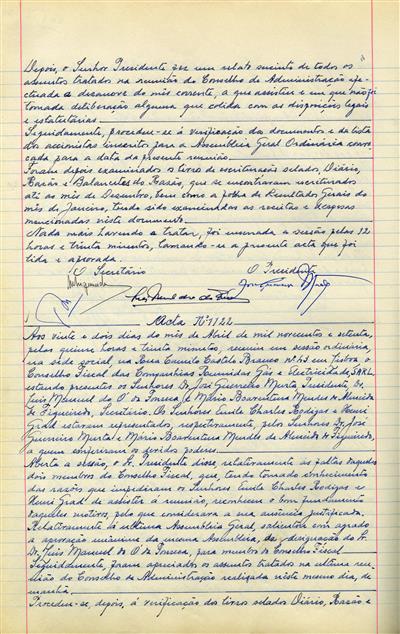 Depois, o Senhor Presidente fez um relato sucinto de todos os
assuntos tratados na reunião do Conselho de Administração efe-
ctuada a dezanove do mês corrente, a que assistiu e em que não foi
tomada deliberação alguma que colida com as disposições legais
e estatutárias.
Seguidamente, procedeu-se à verificação dos documentos e da lista
dos accionistas inscritos para a Assembleia Geral Ordinária convo-
cada para a data da presente reunião.
Foram depois examinados os livros de escrituração selados, Diário,
Razão e Balancetes do Razão, que se encontravam escriturados
até ao mês de Dezembro, bem como a folha de Resultados Gerais do
mês de Janeiro, tendo sido examinadas as receitas e despesas
mencionadas neste documento.
Nada mais havendo a tratar, foi encerrada a sessão pelas 12
horas e trinta minutos, lavrando-se a presente acta que foi
lida e aprovada.
O Secretário O Presidente
Acta Nº 1122
Aos vinte e dois dias do mês de Abril de mil novecentos e setenta,
pelas quinze horas e trinta minutos, reuniu em sessão ordinária,
na sede social na Rua Camilo Castelo Branco nº 43 em Lisboa o
Conselho Fiscal das Companhias Reunidas Gás e Electricidade, SARL,
estando presentes os Senhores Dr. José Guerreiro Murta, Presidente, Dr.
Luís Manuel do O' da Fonseca, e Mário Boaventura Mendes de Almeida
de Figueiredo, Secretário. Os Senhores Emile Charles Rodigas e Henri
Giral estavam representados, respectivamente, pelos Senhores Dr. José
Guerreiro Murta e Mário Boaventura Mendes de Almeida de Figueiredo,
a quem conferiram os devidos poderes.
Aberta a sessão, o Sr. Presidente disse, relativamente às faltas daqueles
dois membros do Conselho Fiscal, que, tendo tomado conhecimento
das razões que impediram os Senhores Emile Charles Rodigas e
Henri Giral de assistir à reunião, reconhecem o bom fundamento
daqueles motivos, pelo que considerava a sua ausência justificada.
Relativamente à última Assembleia Geral, salientou com agrado
a aprovação unânime da mesma Assembleia, da designação do Sr.
Dr. Luís Manuel do O' da Fonseca, para membro do Conselho Fiscal.
Seguidamente, foram apreciados os assuntos tratados na última reu-
nião do Conselho de Administração realizada neste mesmo dia, de
manhã.
Procedeu-se, depois, à verificação dos livros selados Diário, Razão e